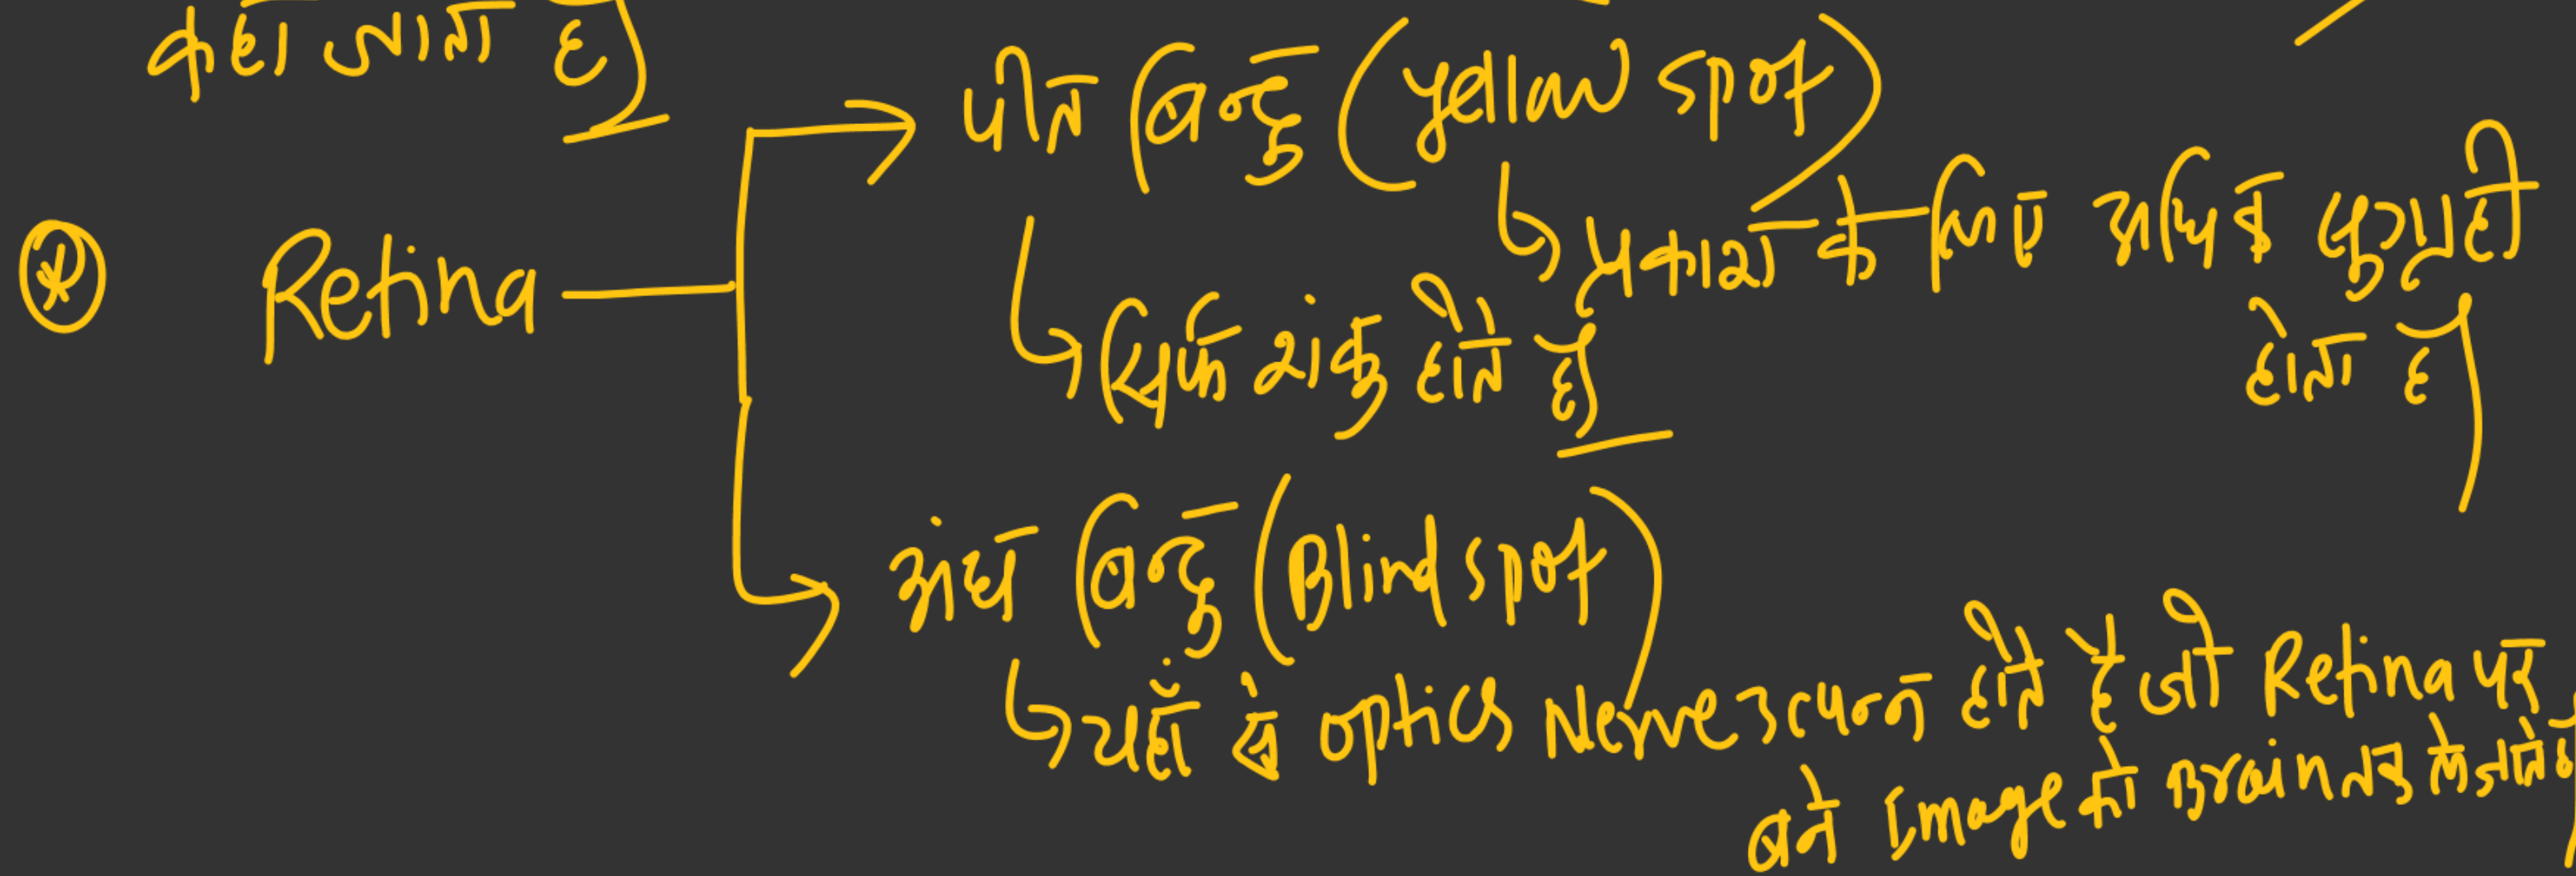 कहा जाता है
पीत बिन्दु (yellow spot)
↳ प्रकाश के लिए अधिक सुग्राही
होता है
↳ सिर्फ शंकु होते हैं
⊛ Retina
अंध बिन्दु (Blind spot)
↳ यहाँ से optics Nerve उत्पन्न होते हैं जो Retina पर
बने Image को Brain तक ले जाते हैं